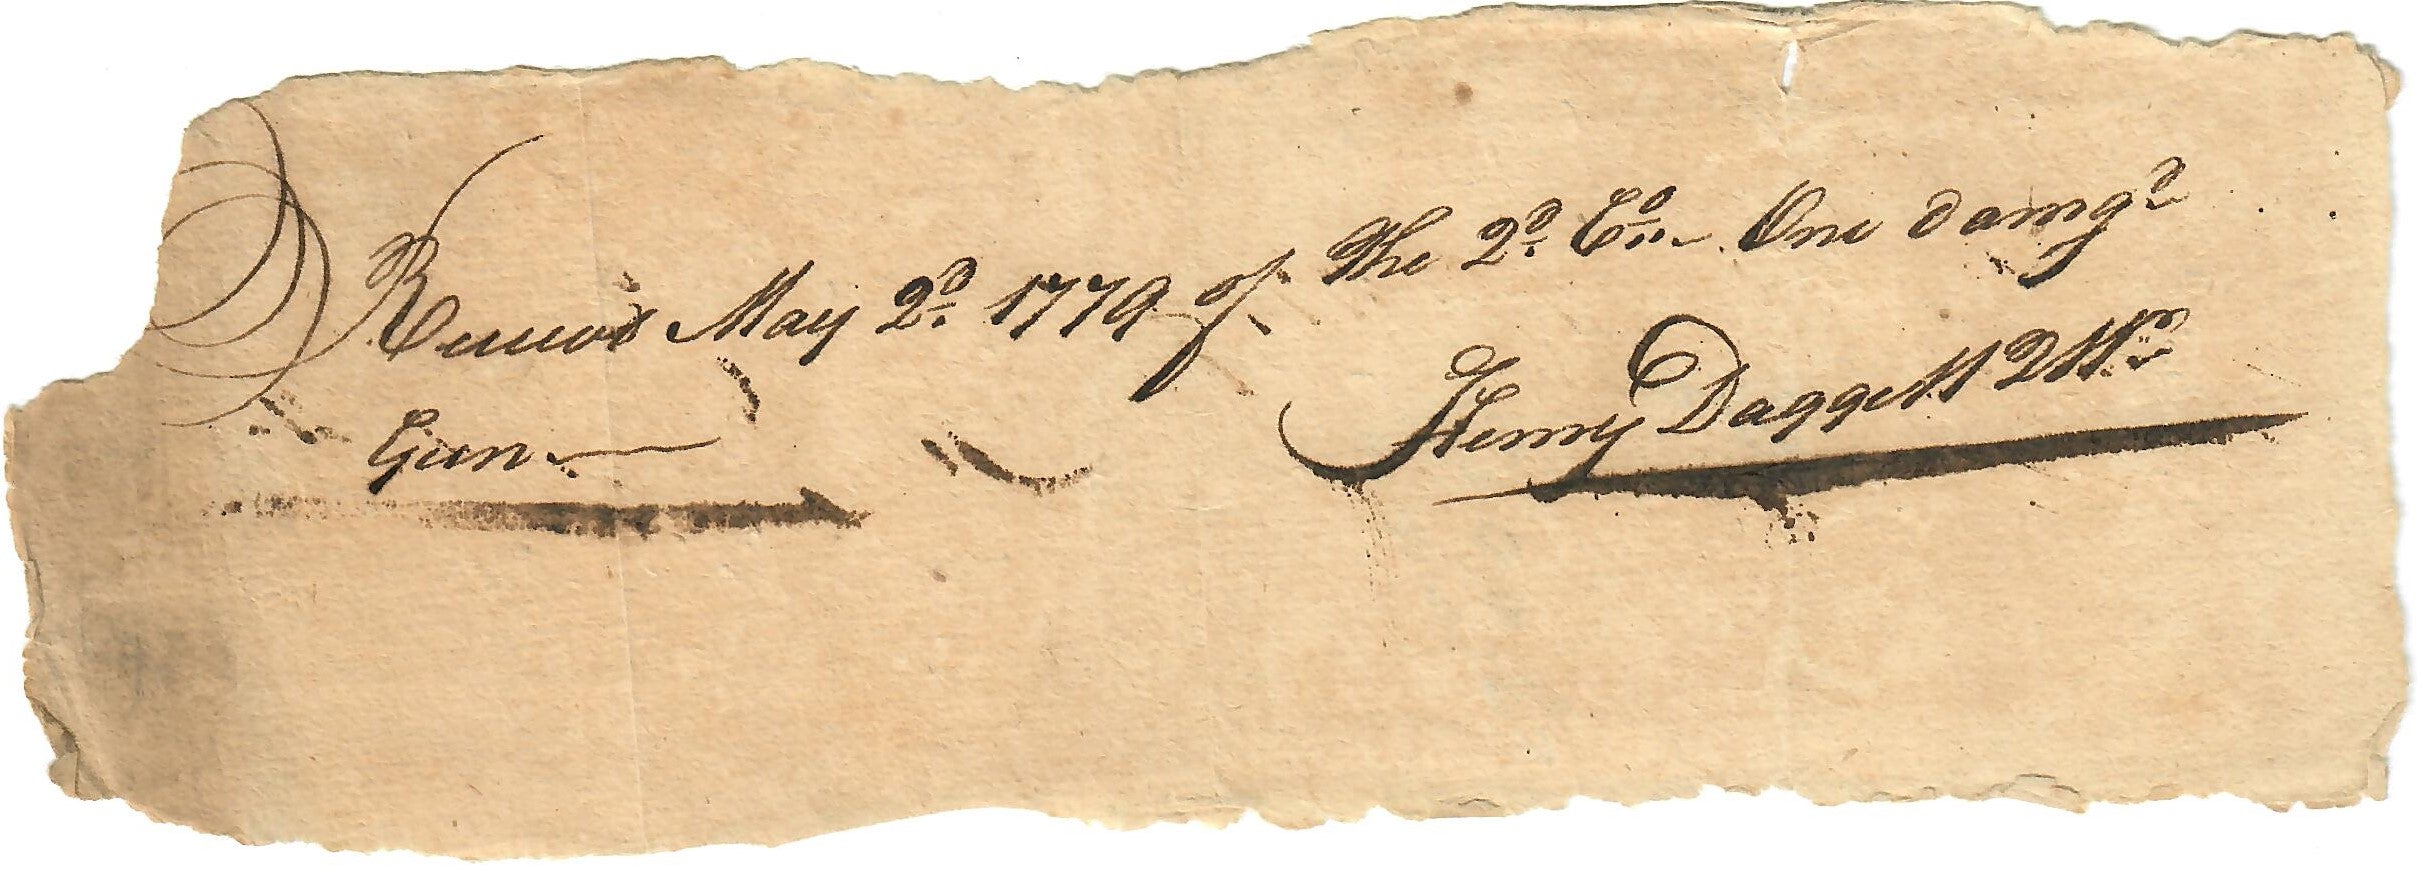 Received May 2d. 1779 of The 2d. Co. One damgd
Gun
Henry Daggett QMr